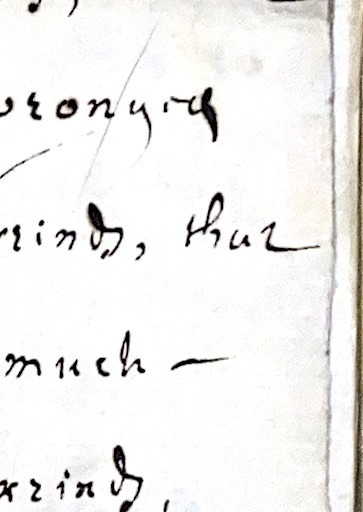 wronged
reinds, that
much —
reinds,